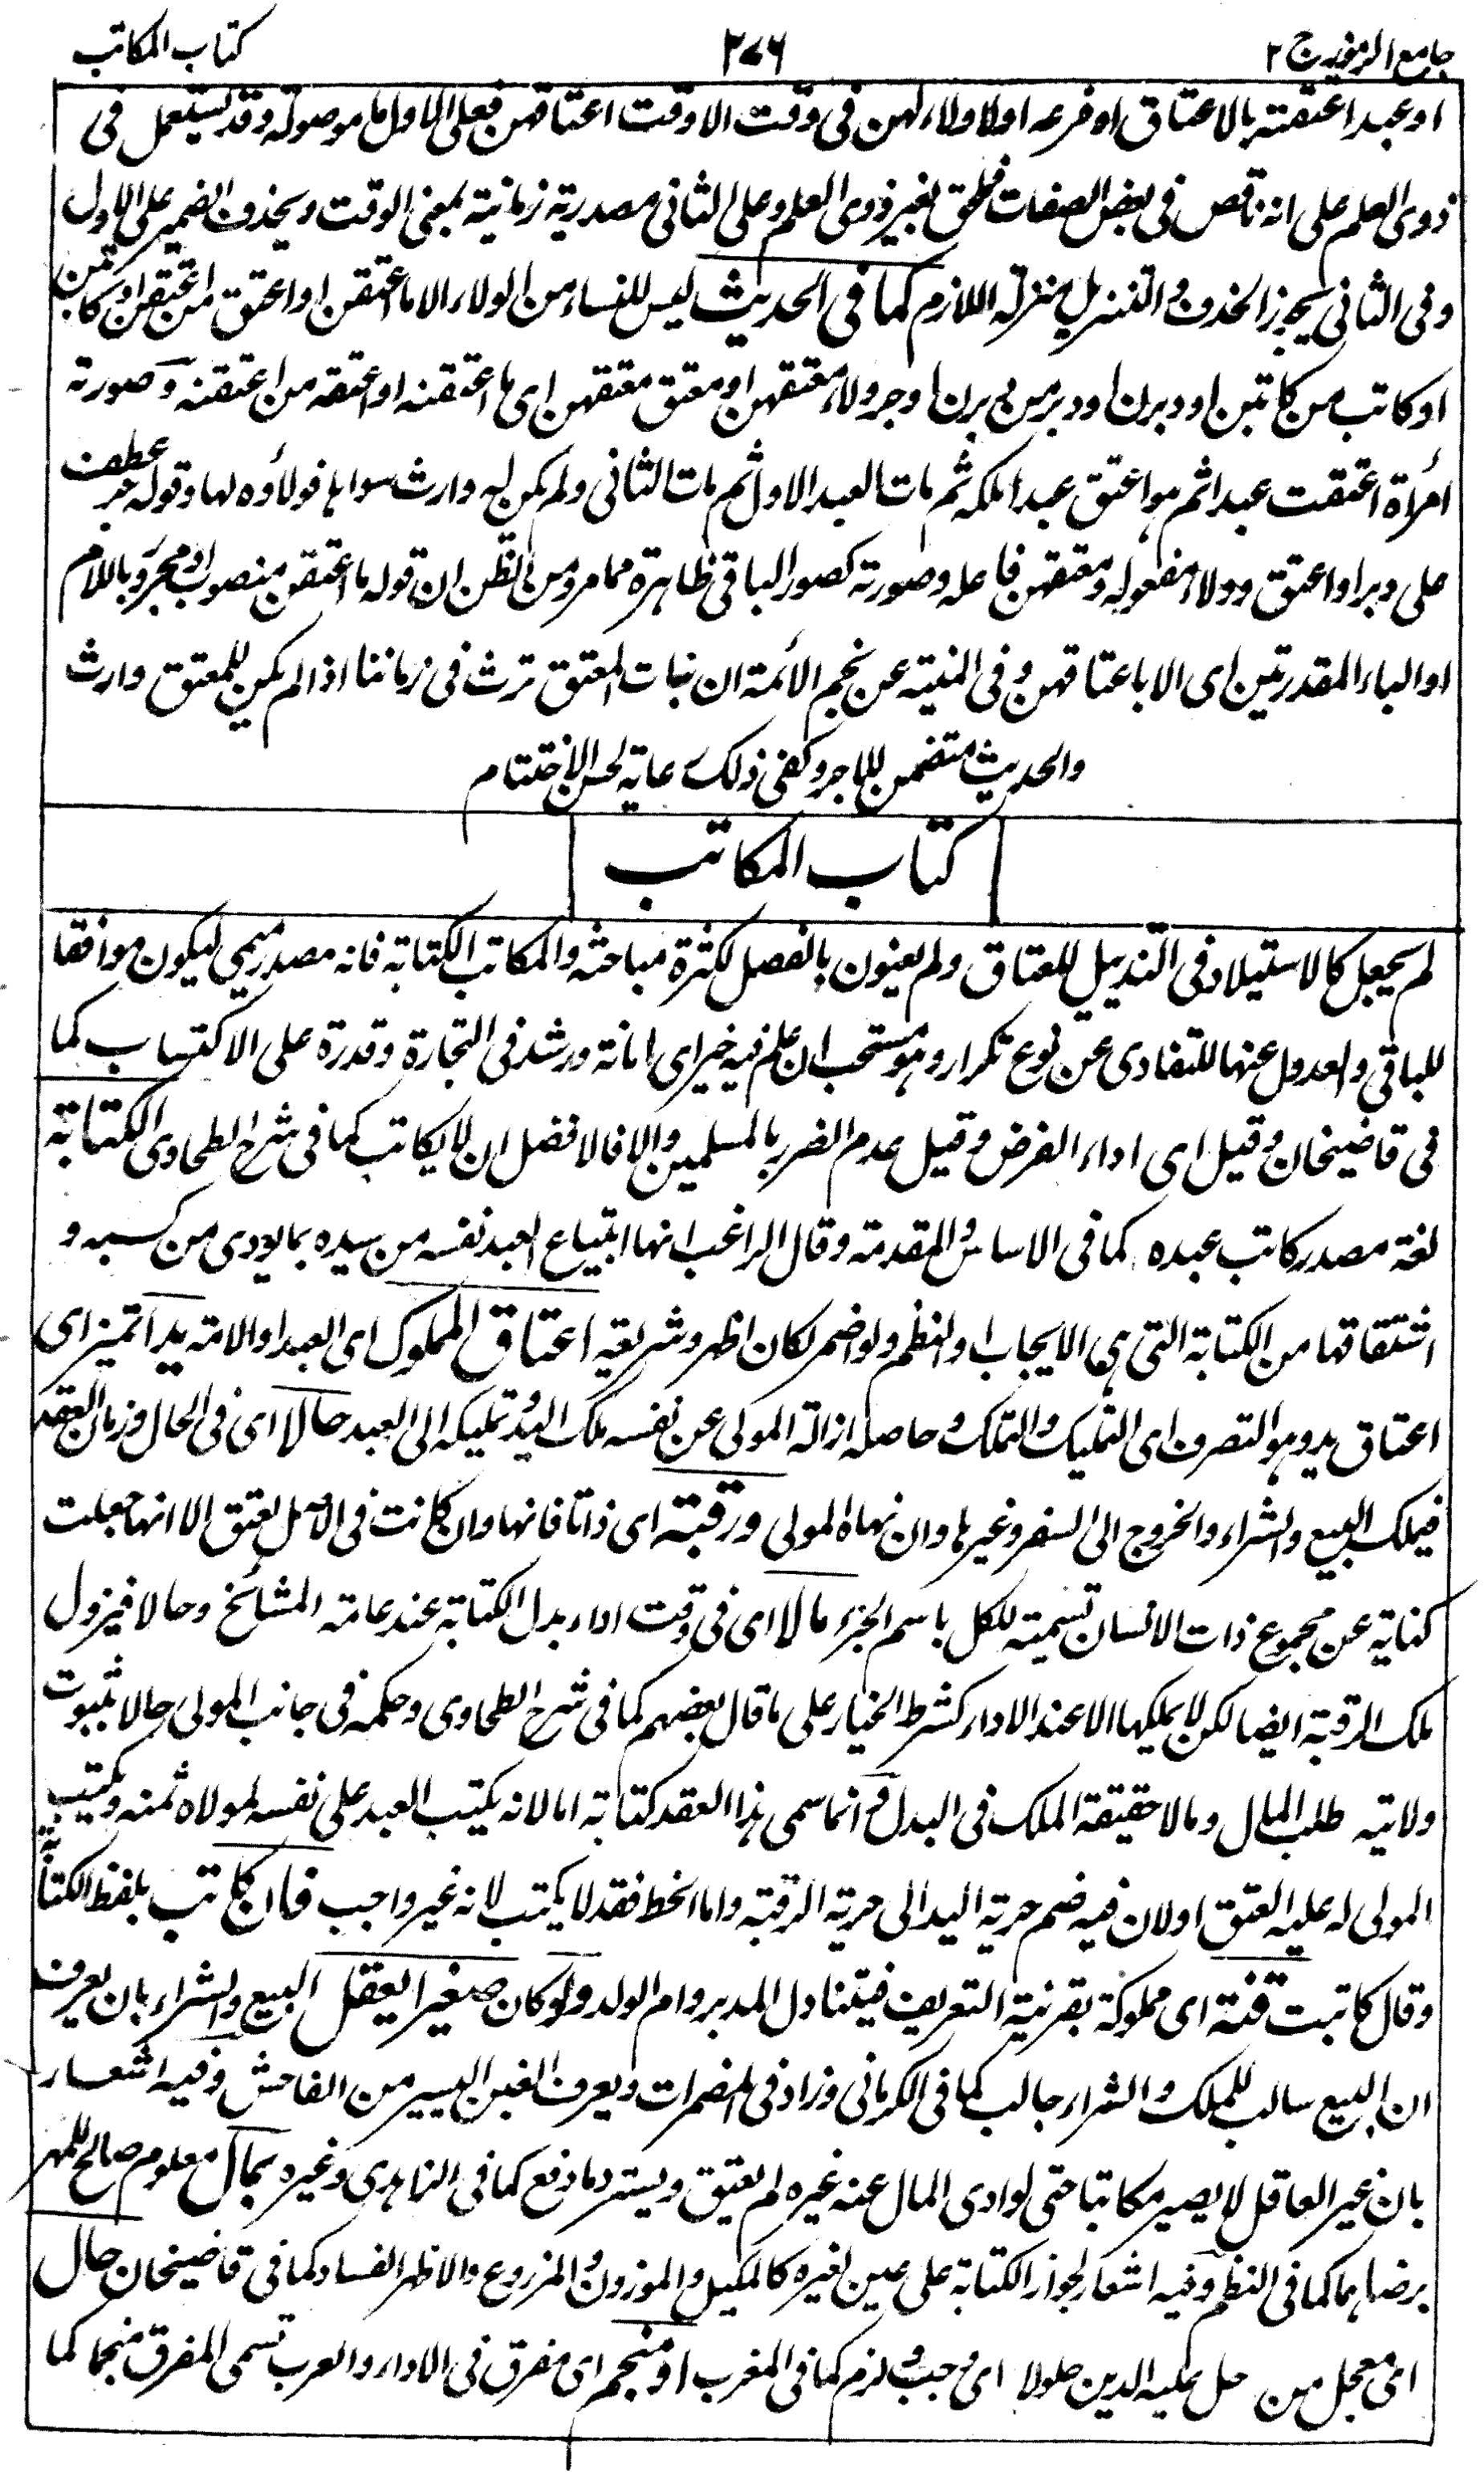 جامع الرموز ج ٢
٢٧٦
كتاب المكاتب
او عبدا عتقته بالاعتاق او فرعه اولا ولاء لهن فى وقت الا وقت اعتاقهن فعلى الاول ما موصولة وقد يستعمل فى
ذوى العلم على انه ناقص فى بعض الصفات فيلحق بغير ذوى العلم وعلى الثانى مصدرية زمانية بمعنى الوقت ويحذف الضمير على الاول
وفى الثانى يجوز الحذف والتنزيل منزلة اللازم كما فى الحديث ليس للنساء من الولاء الا ما اعتقن او اعتق من اعتقن او كاتبن
او كاتب من كاتبن او دبرن او دبر من دبرن او جر ولاء معتقهن او معتق معتقهن اى ما اعتقنه او اعتقه من اعتقنه وصورته
امرأة اعتقت عبدا ثم هو اعتق عبدا ملكه ثم مات العبد الاول ثم مات الثانى ولم يكن له وارث سواها فولاؤه لها وقوله جر عطف
على دبر او اعتق وولاء مفعوله ومعتقهن فاعله وصورته كصور الباقى ظاهرة مما مر ومن الظن ان قوله ما اعتقن منصوب او مجرور باللام
او الباء المقدرتين اى الا باعتاقهن وفى المنية عن نجم الأئمة ان بنات المعتق ترث فى زماننا اذا لم يكن للمعتق وارث
والحديث متضمن للاجر وكفى ذلك عاية لحسن الاختتام
كتاب المكاتب
لم يجعل كالاستيلاد فى التذييل للعتاق ولم يعنون بالفصل لكثرة مباحثه والمكاتب الكتابة فانه مصدر ميمى ليكون موافقا
للباقى والعدول عنها للتفادى عن نوع تكرار وهو مستحب ان علم فيه خيرا اى امانة ورشد فى التجارة وقدرة على الاكتساب كما
فى قاضيخان وقيل اى اداء الفرض وقيل عدم الضرر بالمسلمين والا فالافضل ان لا يكاتب كما فى شرح الطحاوى الكتابة
لغة مصدر كاتب عبده كما فى الاساس والمقدمة وقال الراغب انها ابتياع العبد نفسه من سيده بما يودى من كسبه و
اشتقاقها من الكتابة التى هى الايجاب او النظم ولو اضمر لكان اظهر وشريعة اعتاق المملوك اى العبد او الامة يدا تميز اى
اعتاق يد وهو التصرف اى التمليك والتملك وحاصله ازالة المولى عن نفسه ملك اليد وتمليكه الى العبد حالا اى فى الحال وزمان العقد
فيملك البيع والشراء والخروج الى السفر وغيرها وان نهاه المولى ورقبة اى ذاتا فانها وان كانت فى الاصل لعتق الا انها جعلت
كناية عن مجموع ذات الانسان تسمية للكل باسم الجزء مالا اى فى وقت اداء بدل الكتابة عند عامة المشائخ وحالا فيزول
ملك الرقبة ايضا لكن لا يملكها الا عند الاداء كشرط الخيار على ما قال بعضهم كما فى شرح الطحاوى وحكمه فى جانب المولى حالا ثبوت
ولاية طلب المال ومالا حقيقة الملك فى البدل وانما سمى هذا العقد كتابة اما لانه يكتب العبد على نفسه لمولاه ثمنه ويكتب
المولى له عليه العتق او لان فيه ضم حرية اليد الى حرية الرقبة واما الخط فقد لا يكتب لانه غير واجب فان كاتب بلفظ الكتابة
وقال كاتبت قنة اى مملوكة بقرينة التعريف فيتناول المدبر وام الولد ولو كان صغيرا يعقل البيع والشراء بان يعرف
ان البيع سالب للملك والشراء جالب كما فى الكرمانى وزاد فى المضمرات ويعرف الغبن اليسير من الفاحش وفيه اشعار
بان غير العاقل لا يصير مكاتبا حتى لو ادى المال عنه غيره لم يعتق ويسترد ما دفع كما فى الزاهدى وغيره بمال معلوم صالح للمهر
برضاهما كما فى النظم وفيه اشعار لجواز الكتابة على عين لغيره كالمكيل والموزون والمزروع والاظهر الفساد كما فى قاضيخان حال
اى معجل من حل عليه الدين حلولا اى وجب ولزم كما فى المغرب او منجم اى مفرق فى الاداء والعرب تسمى المفرق منجما كما